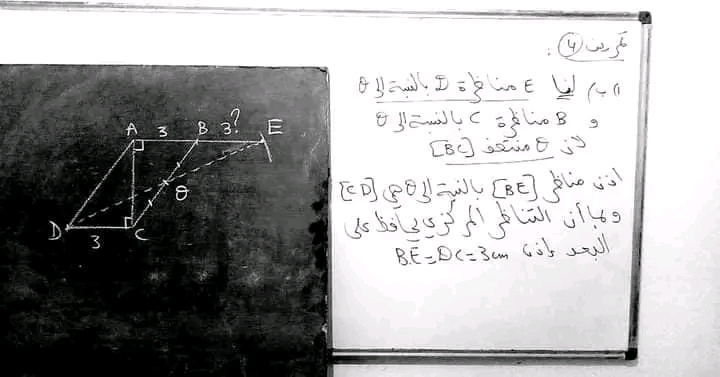 تمرين 4 :
1) ب) لنا E مناظرة D بالنسبة إلى θ
و B مناظرة C بالنسبة إلى θ
لأن θ منتصف [BC]
اذن مناظر [BE] بالنسبة إلى θ هي [CD]
وبما أن التناظر المركزي يحافظ على
البعد فإذن BE=DC=3cm
A 3 B 3? E
θ
D 3 C